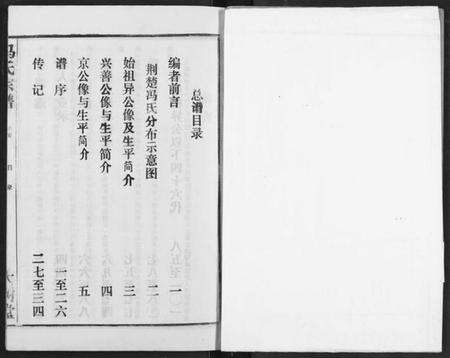 总谱目录
编者前言 一
荆楚冯氏分布示意图 二
始祖异公像及生平简介 三
兴善公像与生平简介 四
京公像与生平简介 五
谱序 一至二六
传记 二七至三四
冯氏宗谱